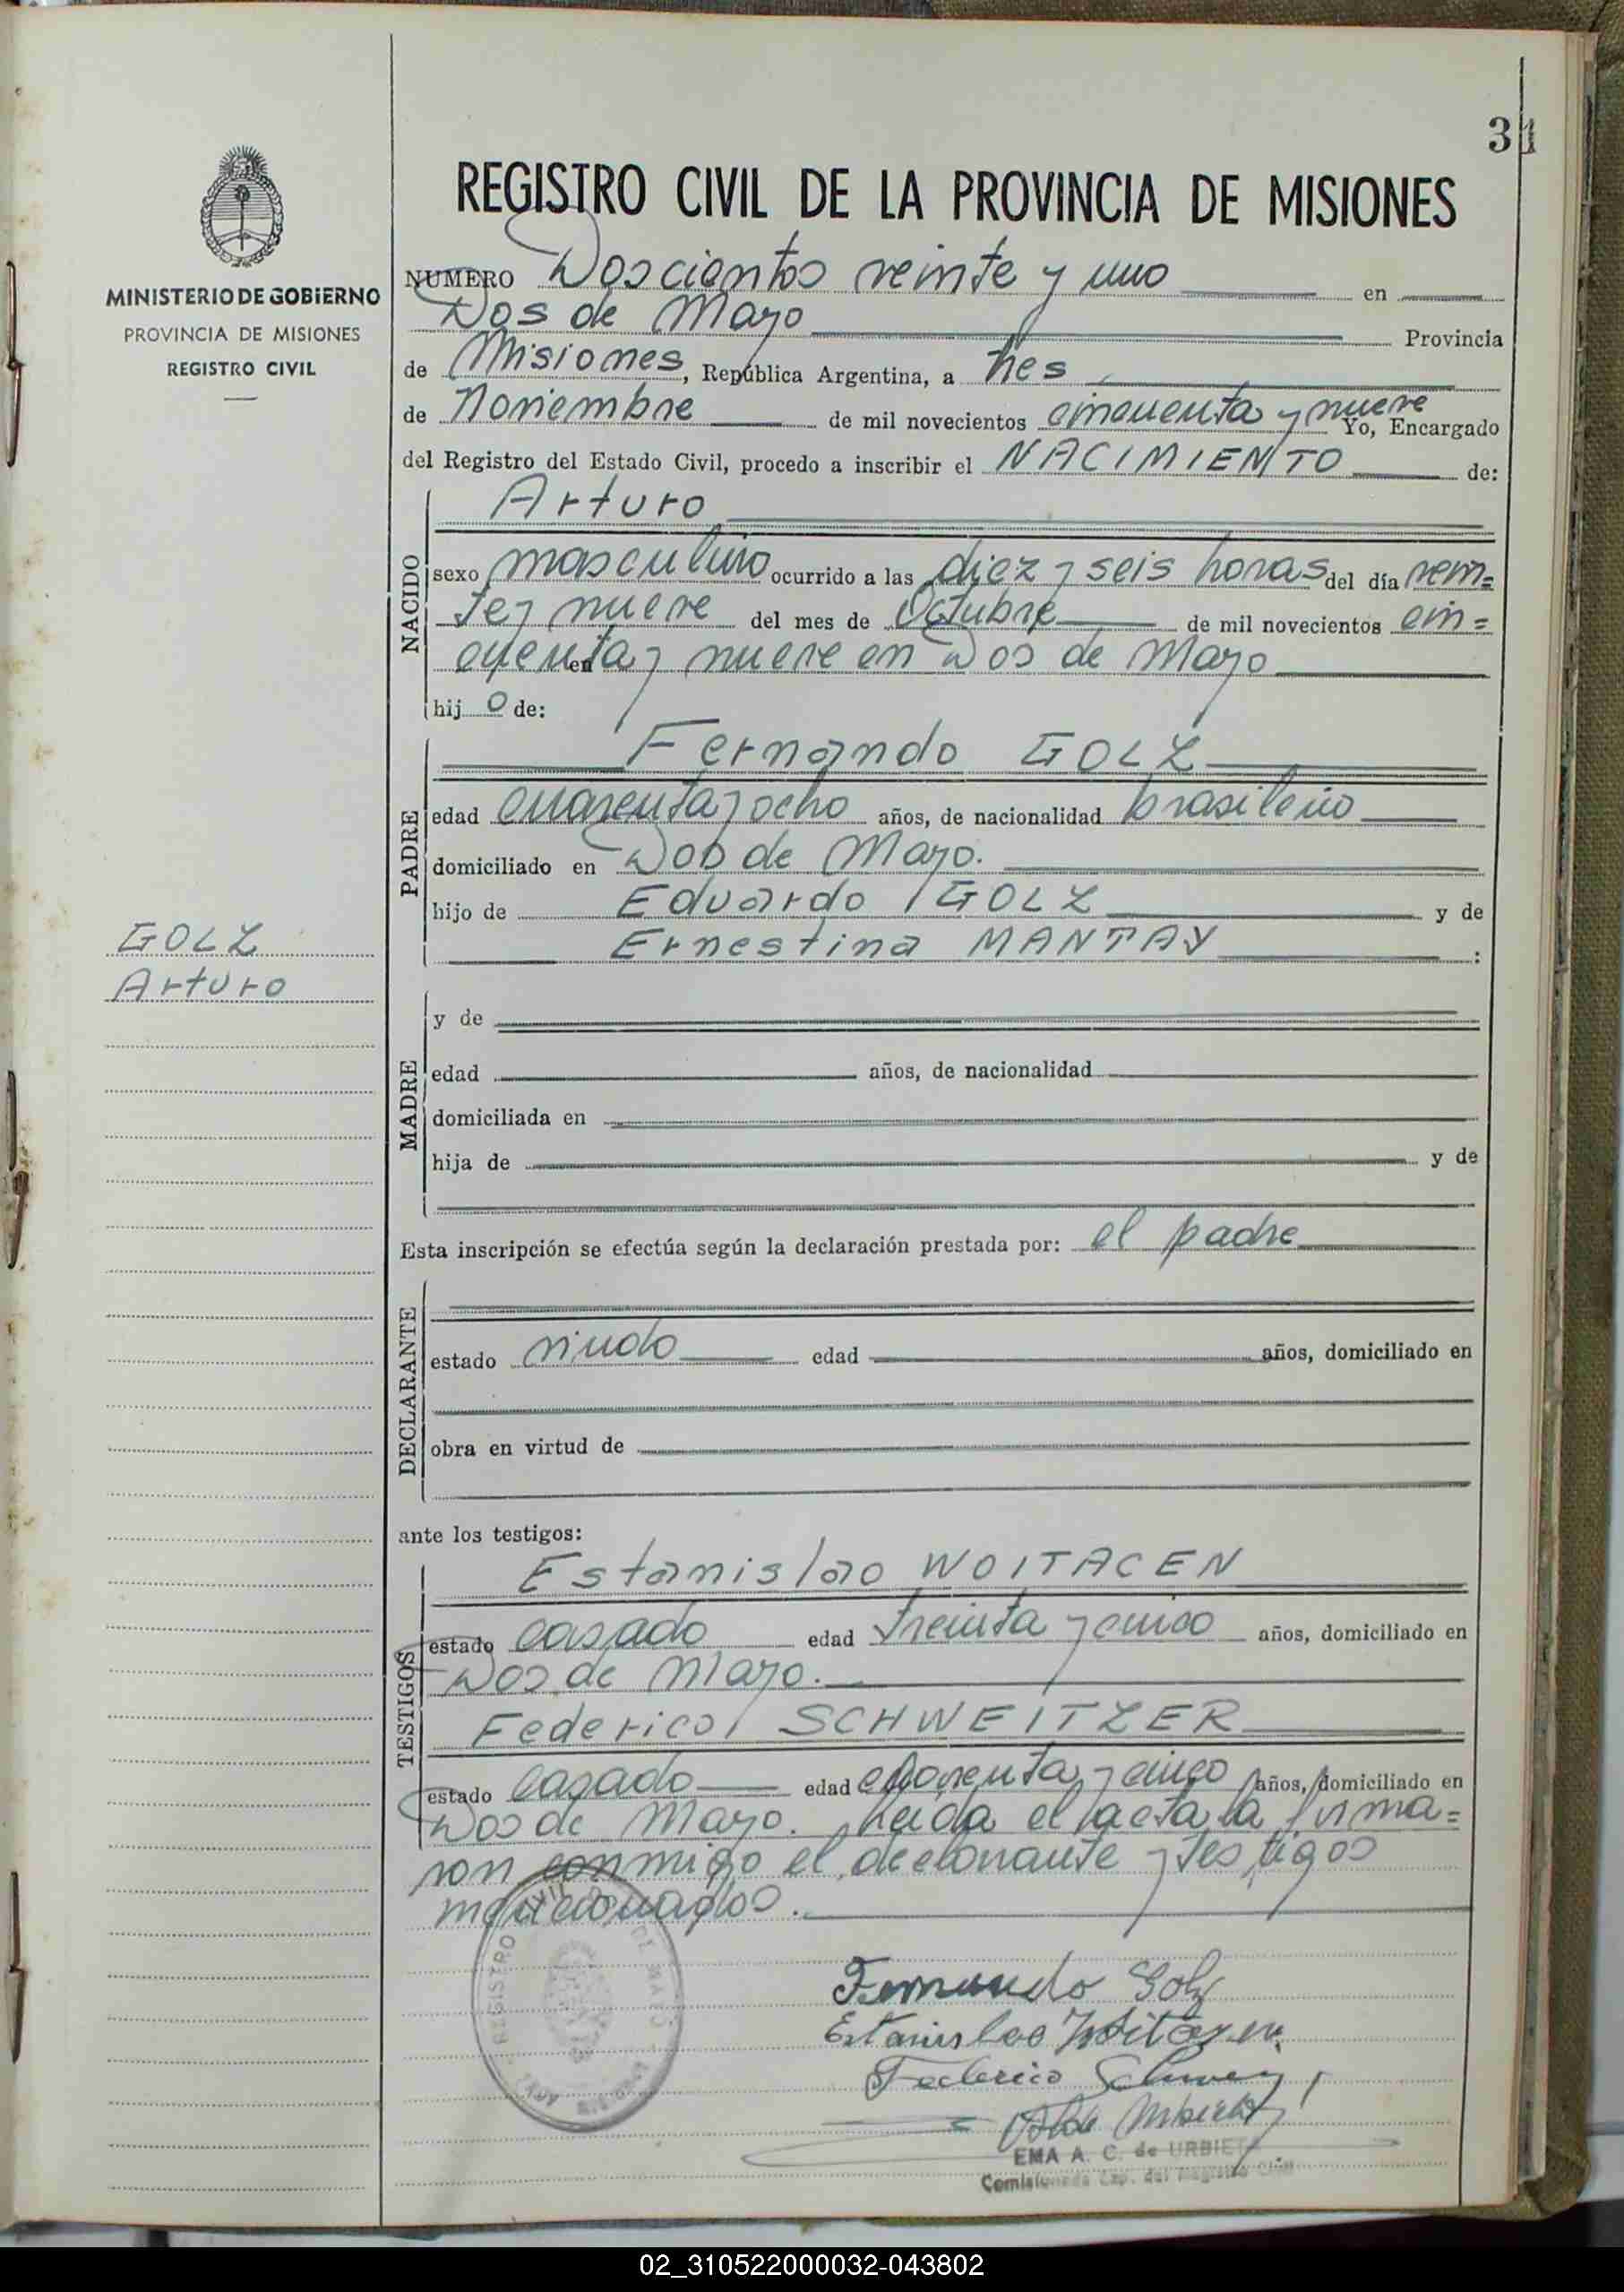 31
REGISTRO CIVIL DE LA PROVINCIA DE MISIONES
MINISTERIO DE GOBIERNO
PROVINCIA DE MISIONES
REGISTRO CIVIL
NUMERO Doscientos veinte y uno en
Dos de Mayo Provincia
de Misiones, República Argentina, a tres
de Noviembre de mil novecientos cincuenta y nueve Yo, Encargado
del Registro del Estado Civil, procedo a inscribir el NACIMIENTO de:
NACIDO
Arturo
sexo masculino ocurrido a las diez y seis horas del día vein=
te y nueve del mes de Octubre de mil novecientos cin=
cuenta y nueve en Dos de Mayo
en
hij o de:
PADRE
Fernando GOLZ
edad cuarenta y ocho años, de nacionalidad brasileño
domiciliado en Dos de Mayo.
hijo de Eduardo GOLZ y de
Ernestina MANTAY :
GOLZ
Arturo
MADRE
y de
edad años, de nacionalidad
domiciliada en
hija de y de
Esta inscripción se efectúa según la declaración prestada por: el padre
DECLARANTE
estado viudo edad años, domiciliado en
obra en virtud de
ante los testigos:
TESTIGOS
Estanislao WOITACEN
estado casado edad treinta y cinco años, domiciliado en
Dos de Mayo.
Federico SCHWEITZER
estado casado edad cuarenta y cinco años, domiciliado en
Dos de Mayo. Leída el acta la firma=
ron conmigo el declarante y testigos
mencionados.
REGISTRO CIVIL DOS DE MAYO
Fernando Golz
Estanislao Woitazen
Federico
EMA A. C. de URBIETA
Comisionada Esp. del Registro Civil
02_310522000032-043802